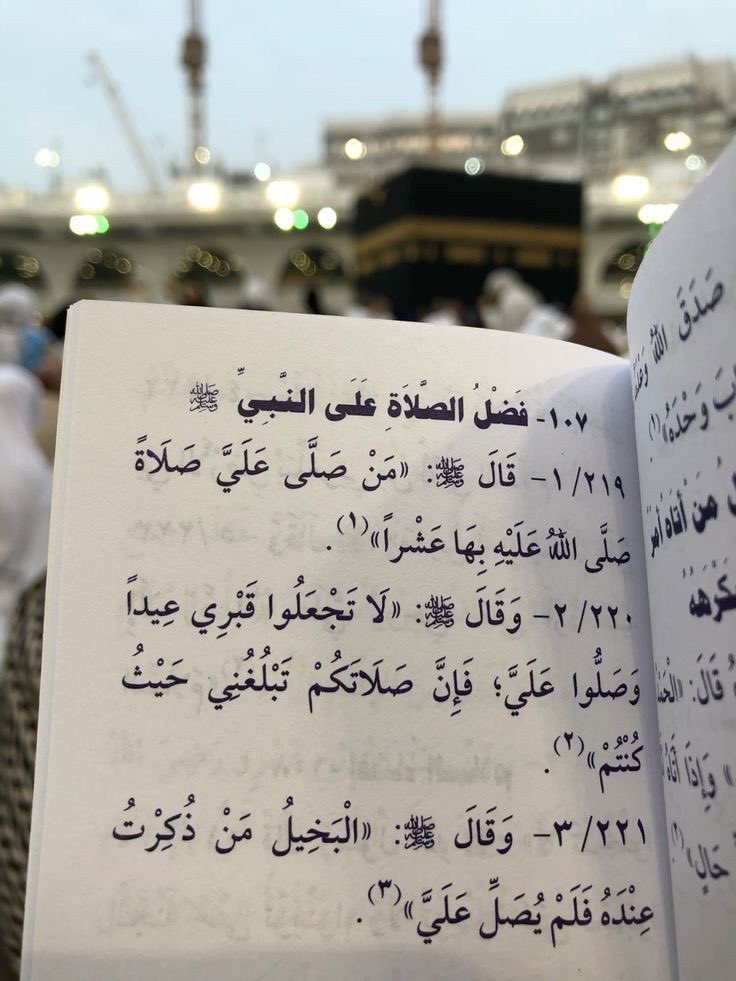 ١٠٧- فَضْلُ الصَّلَاةِ عَلَى النَّبِيِّ ﷺ
٢١٩/ ١- قَالَ ﷺ: «مَنْ صَلَّى عَلَيَّ صَلَاةً
صَلَّى اللهُ عَلَيْهِ بِهَا عَشْراً»(١).
٢٢٠/ ٢- وَقَالَ ﷺ: «لَا تَجْعَلُوا قَبْرِي عِيداً
وَصَلُّوا عَلَيَّ؛ فَإِنَّ صَلَاتَكُمْ تَبْلُغُنِي حَيْثُ
كُنْتُمْ»(٢).
٢٢١/ ٣- وَقَالَ ﷺ: «الْبَخِيلُ مَنْ ذُكِرْتُ
عِنْدَهُ فَلَمْ يُصَلِّ عَلَيَّ»(٣).
صَدَقَ اللهُ
وَحْدَهُ»(١).
مَنْ أَتَاهُ أَمْرٌ
قَالَ:
وَإِذَا
حَالٍ»(٢).